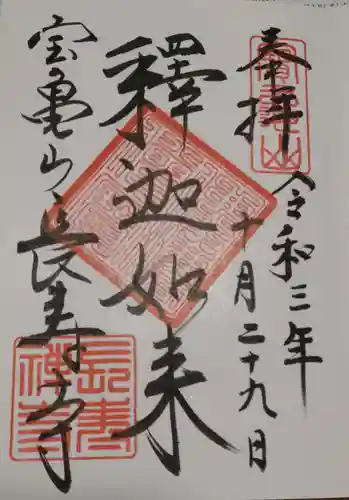 奉拝
令和三年
十月二十九日
釋迦如来
宝亀山長寿寺
寳亀山
長寿禅寺